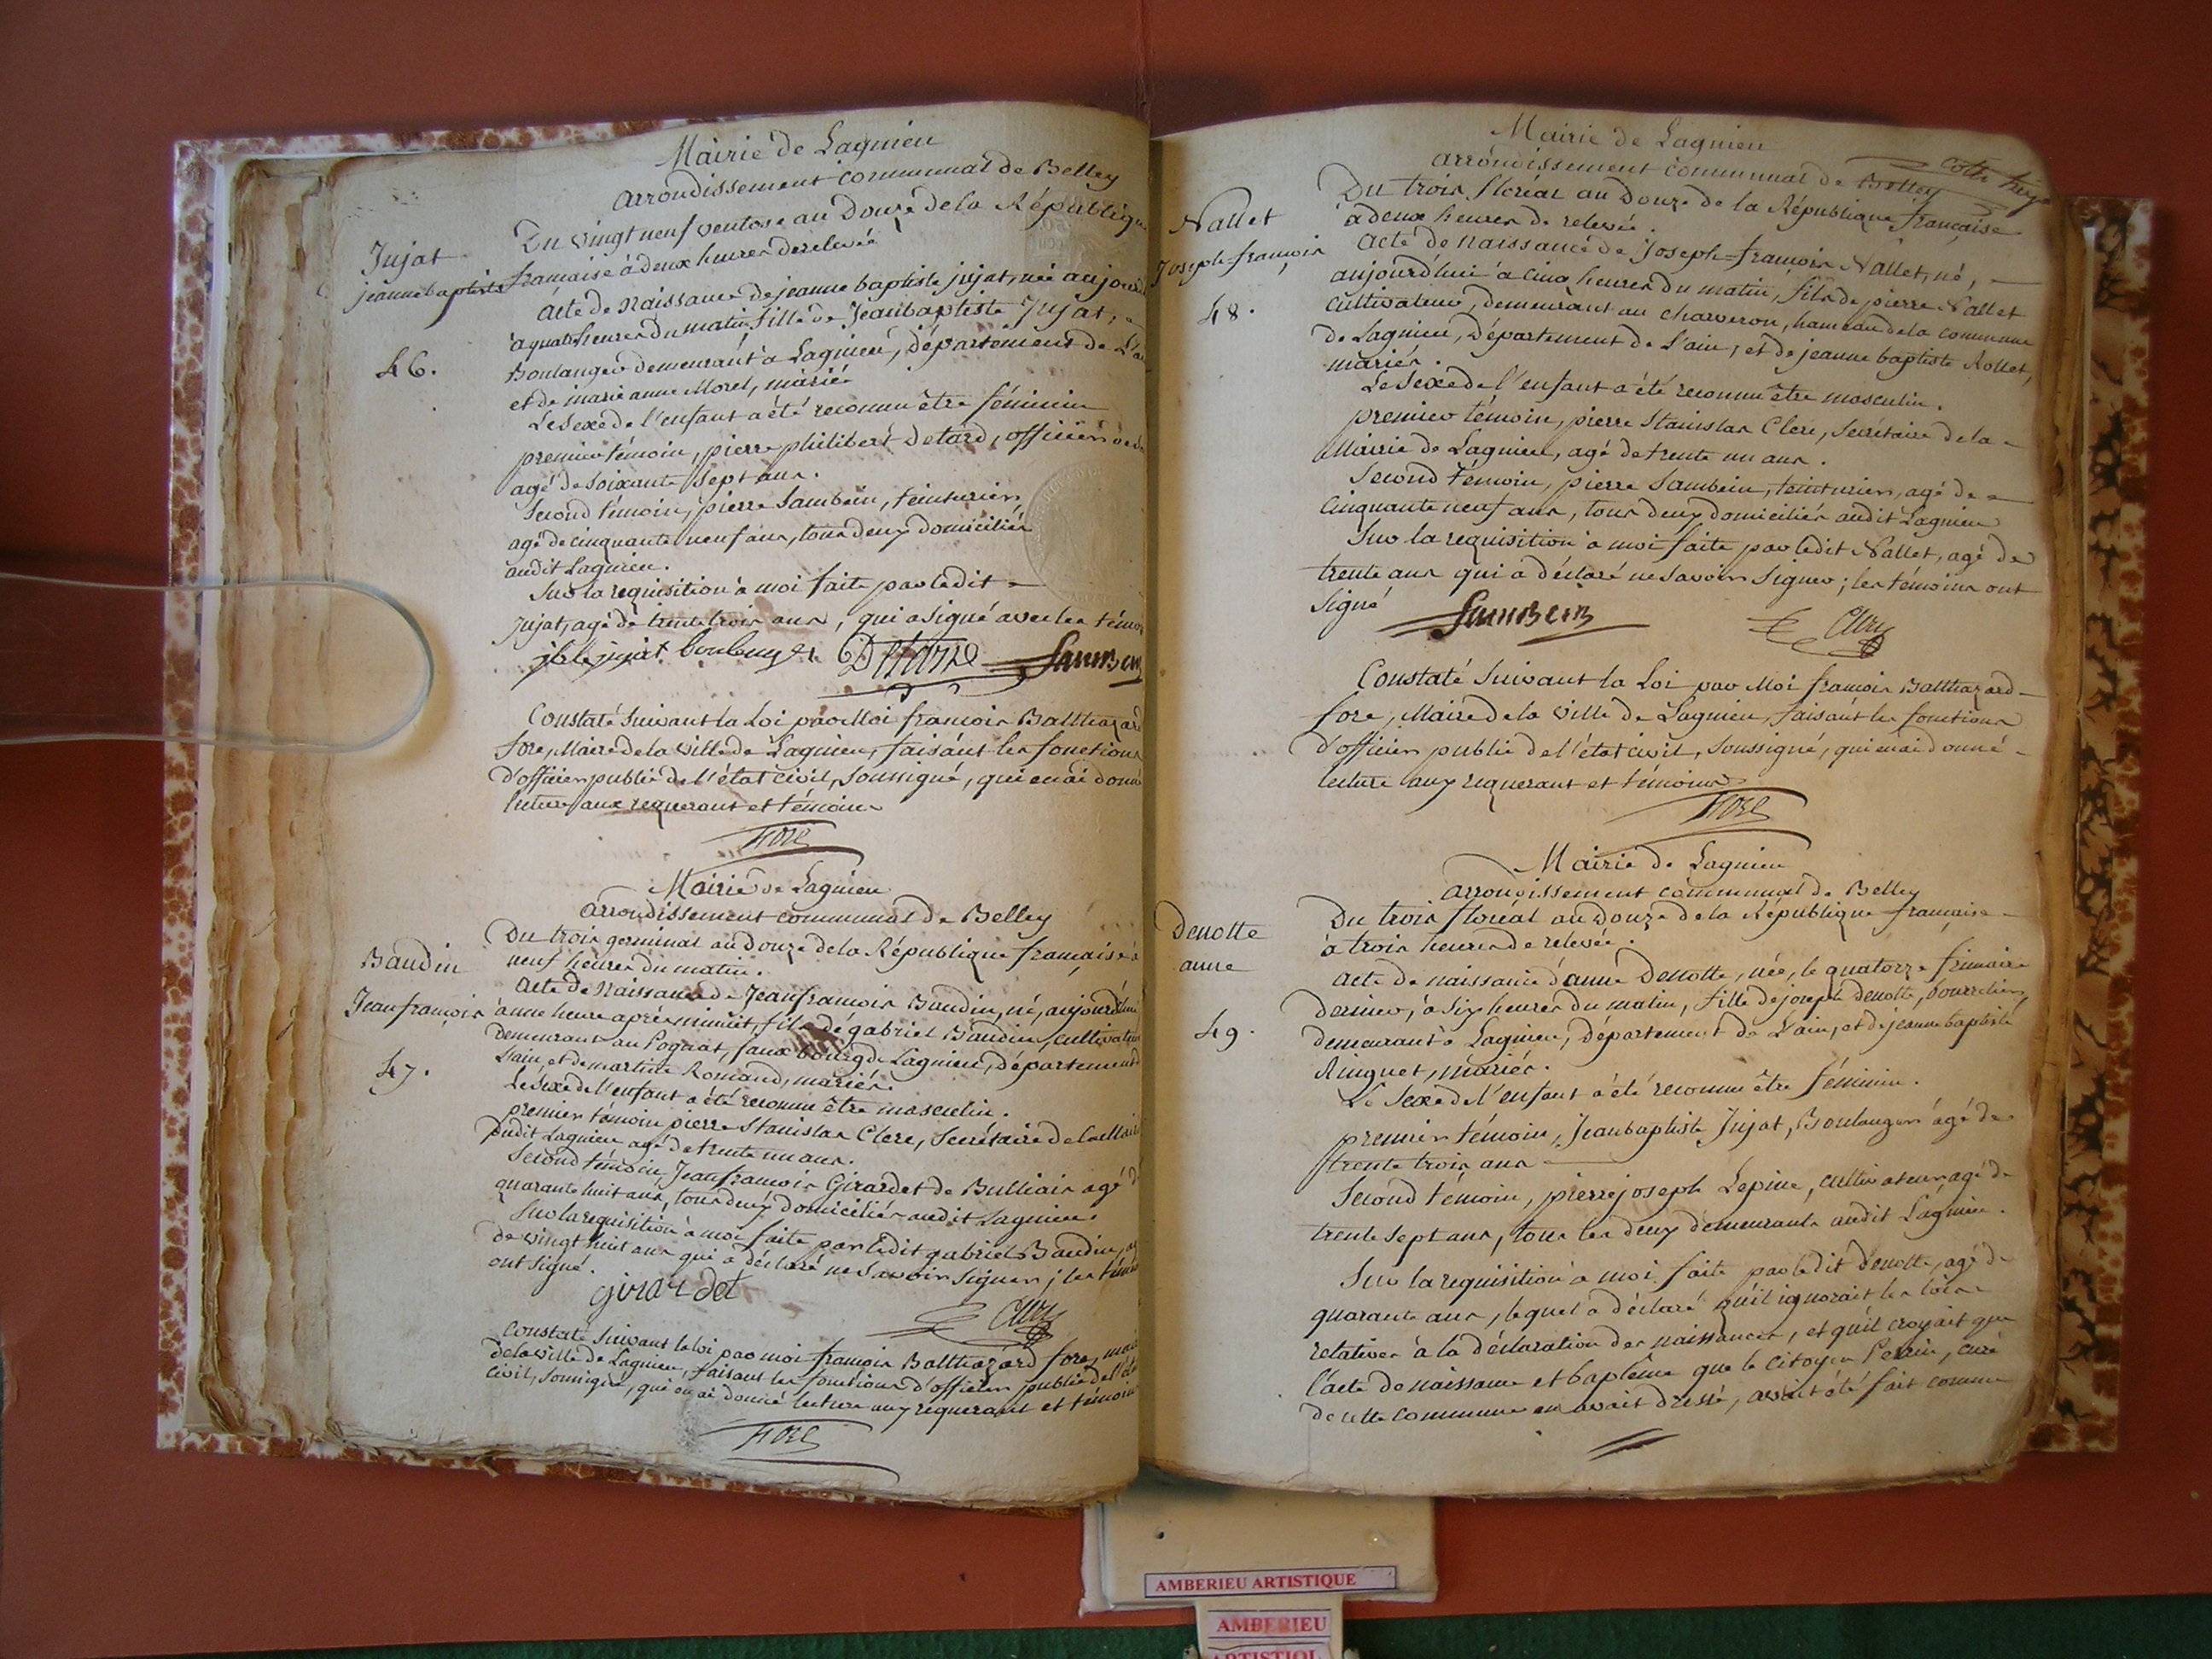 Mairie de Lagnieu
arrondissement communal de Belley
Du vingt neuf ventose an Douze de la République
française à deux heures de relevée
Jujat
jeanne baptiste
46.
acte de Naissance de jeanne baptiste jujat, née aujourd
à quatre heures du matin, fille de Jean baptiste Jujat,
Boulanger demeurant à Lagnieu, département de L'ai
et de marie anne Morel, mariés
Le Sexe de l'enfant a été reconnu être féminin
premier témoin, pierre philibert Detard, officier de
agé de Soixante Sept ans.
Second témoin, pierre Sambein, teinturier,
agé de cinquante neuf ans, tous deux domiciliés
audit Lagnieu.
Sur la requisition à moi faite par ledit
jujat, agé de trente trois ans, qui a signé avec les témoi
jb jujat boulanger Detard Sambein
Constaté Suivant la Loi par Moi françois Balthazard
fore, Maire de la ville de Lagnieu, faisant les fonctions
d'officier public de l'état civil, soussigné, qui en ai donné
lecture aux requerant et témoins
Fore
Mairie de Lagnieu
arrondissement communal de Belley
Du trois germinal an Douze de la République française à
neuf heures du matin.
Baudin
Jean françois
47.
acte de Naissance de Jean françois Baudin, né, aujourd'hui
à une heure après minuit, fils de gabriel Baudin, cultivateur
demeurant au Pognat, faux bourg de Lagnieu, département
L'ain, et de martine Romand, mariés.
Le Sexe de l'enfant a été reconnu être masculin.
premier témoin pierre Stanislas Clerc, Secrétaire de la Mairie
dudit Lagnieu agé de trente un ans.
Second témoin, Jean françois Girardet de Bulliais agé d
quarante huit ans, tous deux domiciliés audit Lagnieu.
Sur la requisition à moi faite par ledit gabriel Baudin, ag
de vingt huit ans qui a déclaré ne Savoir Signer; les témoi
ont signé.
girardet Clerc
Constaté Suivant la loi par moi françois Balthazard fore, mai
de la ville de Lagnieu, faisant les fonctions d'officier public de l'éta
civil, soussigné, qui en ai donné lecture aux requerant et témoins
Fore
Mairie de Lagnieu
arrondissement communal de Belley
Du trois floréal an Douze de la République française
à deux heures de relevée.
Nallet
Joseph-françois
48.
acte de Naissance de Joseph-françois Nallet, né,
aujourd'hui à cinq heures du matin, fils de pierre Nallet
cultivateur, demeurant au charveron, hameau de la commune
de Lagnieu, Département de L'ain, et de jeanne baptiste Rollet,
mariés.
Le Sexe de l'enfant a été reconnu être masculin.
premier témoin, pierre Stanislas Clerc, Secrétaire de la
Mairie de Lagnieu, agé de trente un ans.
Second témoin, pierre Sambein, teinturier, agé de
cinquante neuf ans, tous deux domiciliés audit Lagnieu
Sur la requisition à moi faite par ledit Nallet, agé de
trente ans qui a déclaré ne Savoir Signer; les témoins ont
Signé
Sambein Clerc
Constaté Suivant la Loi par Moi françois Balthazard
fore, Maire de la ville de Lagnieu, faisant les fonctions
d'officier public de l'état civil, soussigné, qui en ai donné
lecture aux requerant et témoins
Fore
Mairie de Lagnieu
arrondissement communal de Belley
Du trois floréal an Douze de la République française
à trois heures de relevée.
Denotte
anne
49.
acte de naissance d'anne Denotte, née, le quatorze frimaire
dernier, à six heures du matin, fille de joseph Denotte, bourrelier,
demeurant à Lagnieu, Département de L'ain, et de jeanne baptiste
Ringuet, mariés.
Le Sexe de l'enfant a été reconnu être féminin.
premier témoin, Jean baptiste Jujat, Boulanger agé de
trente trois ans
Second témoin, pierre joseph Lepine, cultivateur, agé de
trente sept ans, tous les deux demeurants audit Lagnieu.
Sur la requisition à moi faite par ledit Denotte, agé de
quarante ans, lequel a déclaré qu'il ignorait les loix
relatives à la déclaration des naissances, et qu'il croyait que
l'acte de naissance et baptême que le Citoyen Perrin, curé
de cette commune en avait dressé, avait été fait comme
AMBERIEU ARTISTIQUE
AMBERIEU